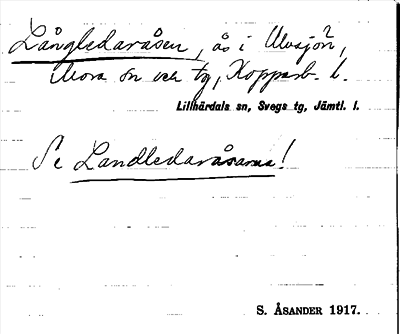 Långledaråsen, ås i Vasjön?,
Mora sn och tg, Kopparb. l.
Lillhärdals sn, Svegs tg, Jämtl. l.
Se Landledaråsarna!
S. ÅSANDER 1917.